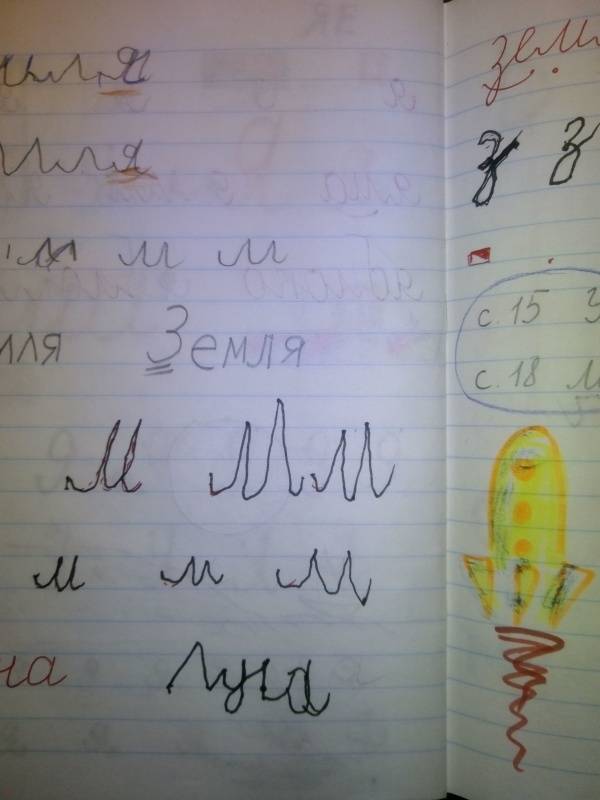 мля
мля
м м м
мля Земля
М М М
м м м
на Луна
земл
з з
с. 15
с. 18